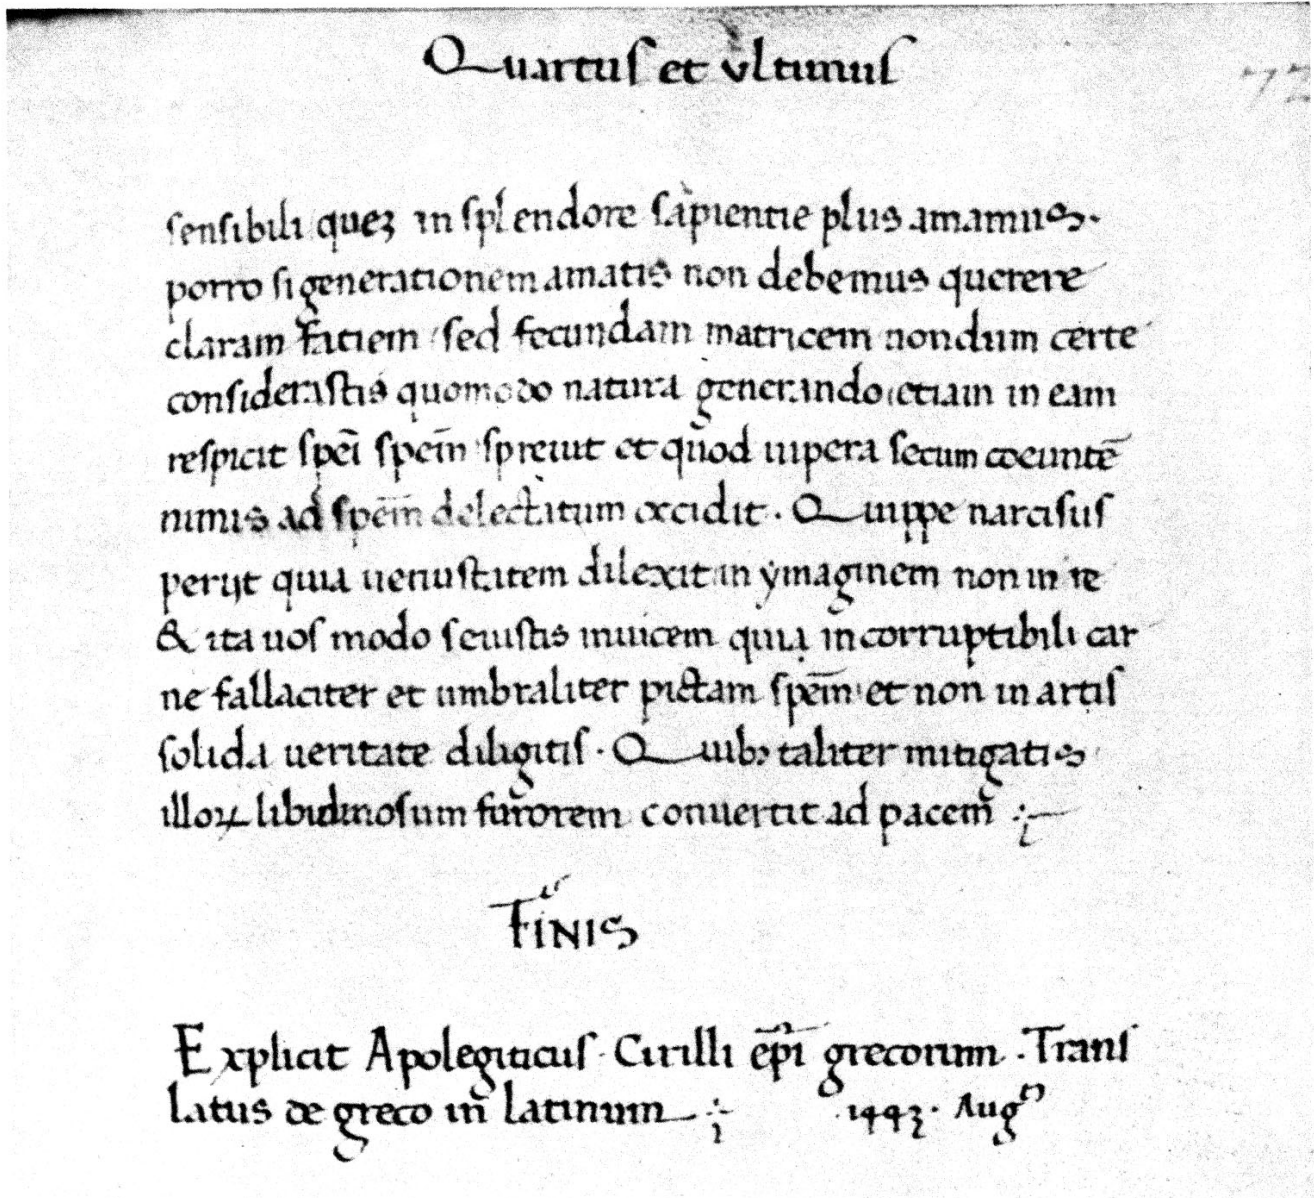 Quartus et vltimus
72
sensibili quez in splendore sapientie plus amamus.
porro si generationem amatis non debemus querere
claram fatiem sed fecundam matricem nondum certe
considerastis quomodo natura generando etiam in eam
respicit spēi spēm spreuit et quod uipera secum coeuntē
nimis ad spēm delectatum occidit. Quippe narcisus
perijt quia uenustatem dilexit in ymaginem non in re
& ita uos modo seuistis inuicem quia in corruptibili car
ne fallaciter et umbraliter pictam spēm et non in artis
solida ueritate diligitis. Quibꝫ taliter mitigatis
illoꝝ libidinosum furorem conuertit ad pacem
FINIS
Explicit Apolegiticus Cirilli ēpī grecorum. Trans
latus de greco in latinum .1443. Augᵒ